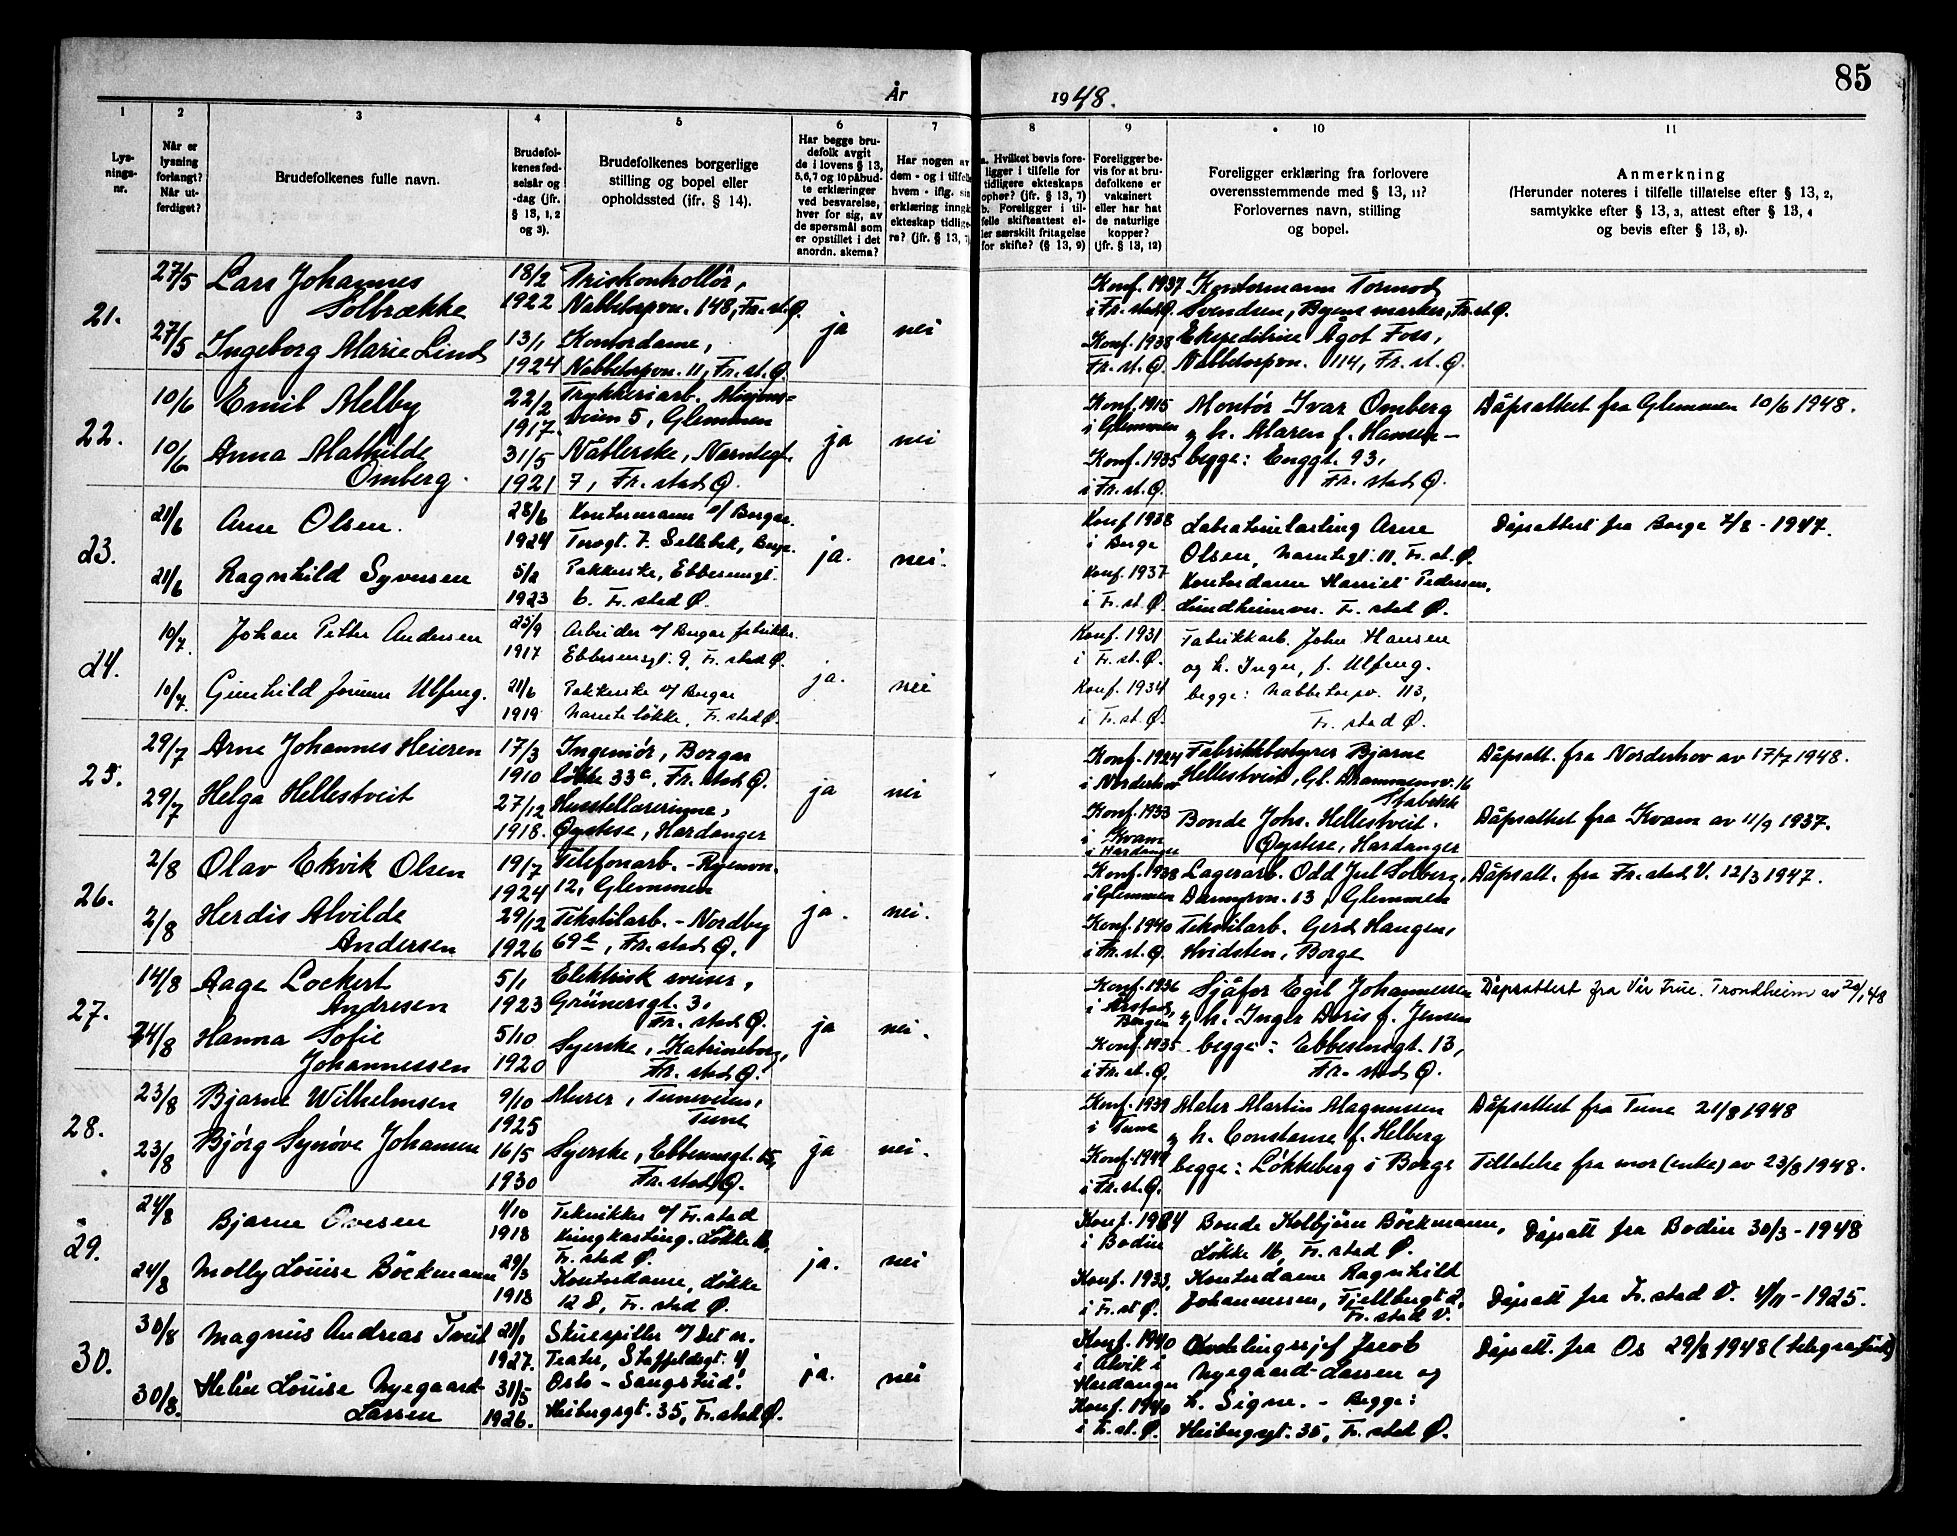 85
År 1948.
1 2 3 4 5 6 7 8 9 10 11
Lys-
nings-
nr.
Når er
lysning
forlangt?
Når ut-
ferdiget?
Brudefolkenes fulle navn.
Brudefol-
kenes fød-
selsår og
-dag (jfr.
§ 13, 1, 2
og 3).
Brudefolkenes borgerlige
stilling og bopel eller
opholdssted (ifr. § 14).
Har begge bru-
defolk avgit
de i lovens § 13,
5,6,7 og 10 påbud-
te erklæringer
ved besvarelse,
hver for sig, av
de spørsmål som
er opstillet i det
anordn. skema?
Har nogen av
dem - og i tilfelle
hvem - iflg. sin
erklæring inngått
ekteskap tidlige-
re? (jfr. § 13, 7)
a. Hvilket bevis fore-
ligger i tilfelle for
tidligere ekteskaps
ophør? (jfr. § 13, 7)
b. Foreligger i til-
felle skifteattest el-
ler særskilt fritagelse
for skifte? (§ 13, 9)
Foreligger be-
vis for at bru-
defolkene er
vaksinert
eller har hat
de naturlige
kopper?
(jfr. § 13, 12)
Foreligger erklæring fra forlovere
overensstemmende med § 13, 11?
Forlovernes navn, stilling
og bopel.
Anmerkning
(Herunder noteres i tilfelle tillatelse efter § 13, 2,
samtykke efter § 13, 3, attest efter § 13, 4
og bevis efter § 13, 8).
21.
27/5 Lars Johannes
Solbrække
18/2
1922
Priskontrollør,
Nabbetorpvn. 148, Fr.st.Ø.
27/5 Ingeborg Marie Lind
13/1
1924
Kontordame,
Nabbetorpvn. 11, Fr.st.Ø.
ja nei
Konf. 1937
i Fr.stad Ø.
Konf. 1938
Fr.st.Ø.
Kontormann Tormod
Svendsen, Byens marker, Fr.st.Ø.
Ekspeditrise Ågot Foss,
Nabbetorpvn. 114, Fr.st.Ø.
22.
10/6 Emil Melby
22/2
1917.
Trykkeriarb. Misjons-
veien 5, Glemmen
10/6 Anna Mathilde
Omberg.
31/5
1921
Nåtlerske, Narntegt.
7, Fr.stad Ø.
ja nei
Konf. 1915
i Glemmen
Konf. 1935
i Fr.st.Ø.
Montør Ivar Omberg
og h. Maren f. Hansen -
begge: Enggt. 93,
Fr.stad Ø.
Dåpsattest fra Glemmen 10/6 1948.
23.
21/6 Arne Olsen.
28/6
1924
Kontormann v/ Borgar.
Torvgt. 7. Sellebak, Borge.
21/6 Ragnhild Syversen
5/2
1923
Pakkerske, Ebbesensgt.
6. Fr.stad Ø.
ja. nei.
Konf. 1938
i Borge
Konf. 1937
i Fr.st.Ø.
Arne
Olsen, Narntegt. 11, Fr.st.Ø.
Kontordame Harriet Pedersen,
Lundheimvn. Fr.stad Ø.
Dåpsattest fra Borge 7/8 - 1947.
24.
10/7 Johan Petter Andersen
25/9
1917
Arbeider v/ Borgar fabrikker.
Ebbesensgt. 9, Fr.stad Ø.
10/7 Gunhild Jorunn Ulfeng.
21/6
1919
Pakkerske v/ Borgar
Narnte løkke, Fr.stad Ø.
ja. nei
Konf. 1931
i Fr.st.Ø.
Konf. 1934
i Fr.st.Ø.
Fabrikkarb. John Hansen
og h. Inger, f. Ulfeng.
begge: Nabbetorpv. 113,
Fr.stad Ø.
25.
29/7 Arne Johannes Heieren
17/3
1910
Ingeniør, Borgar
løkke 33a, Fr.stad Ø.
29/7 Helga Hellestveit
27/12
1918.
Husstellærerinne,
Øystese, Hardanger
ja nei
Konf. 1924
i Norderhov
Konf. 1933
i Kvam
i Hardanger
Fabrikkbestyrer Bjarne
Hellestveit, Gl. Drammensv. 16
Stabekk
Bonde Johs. Hellestveit.
Øystese, Hardanger
Dåpsatt. fra Norderhov av 17/7 1948.
Dåpsattest fra Kvam av 11/9 1937.
26.
2/8 Olav Ekvik Olsen
19/7
1924
Telefonarb. - Ryenvn.
12, Glemmen
2/8 Herdis Alvilde
Andersen
29/12
1926
Tekstilarb. - Nordby
69e, Fr.stad Ø.
ja. nei.
Konf. 1938
i Glemmen
Konf. 1940
i Fr.st.Ø.
Lagerarb. Odd Jul Solberg,
13, Glemmen
Tekstilarb. Gerd Haugen,
Hvidsten, Borge
Dåpsatt. fra Fr.stad V. 12/3 1947.
27.
14/8 Aage Lockert
Andresen
5/1
1923
Elektrisk sveiser,
Grünersgt. 3,
Fr.stad Ø.
14/8 Hanna Sofie
Johannessen
5/10
1920
Syerske, Katrineborg,
Fr.stad Ø.
ja nei.
Konf. 1936
i Årstad,
Bergen
Konf. 1935
i Fr.st.Ø.
Sjåfør Egil Johannessen
og h. Inger Doris f. Jensen
begge: Ebbesensgt. 13,
Fr.stad Ø.
Dåpsattest fra Vår Frue. Trondheim av 20/1 48
28.
23/8 Bjarne Wilhelmsen
9/10
1925
Murer, Tuneveien,
Tune
23/8 Bjørg Synøve Johansen
16/5
1930
Syerske, Ebbesensgt. 15,
Fr.stad Ø.
ja nei.
Konf. 1939
i Tune
Konf. 1944
i Fr.st.Ø.
Maler Martin Magnussen
og h. Constanse f. Helberg
begge: Løkkeberg i Borge
Dåpsattest fra Tune 21/8 1948
Tillatelse fra mor (enke) av 23/8 1948.
29.
24/8 Bjarne Ovesen
1/10
1918
Tekniker v/ Fr.stad
kringkasting. Løkke 16,
Fr.stad Ø.
24/8 Molly Louise Böckmann
29/3
1918
Kontordame, Løkke
12 D, Fr.stad Ø.
ja. nei
Konf. 1934
i Bodin
Konf. 1933,
i Fr.st.Ø.
Bonde Kolbjørn Böckmann,
Løkke 16, Fr.stad Ø.
Kontordame Ragnhild
Johannessen, Fjellbergt 2,
Fr.stad V.
Dåpsatt fra Bodin 30/3 - 1948
Dåpsatt fra Fr.stad V. 4/11 - 1925.
30.
30/8 Magnus Andreas Tveit
21/1
1927.
Skuespiller v/ Det n.
Teater, Staffeldsgt. 4
Oslo - Sangstud.
30/8. Helen Louise Nygaard-
Larsen
31/5
1926.
Heibergsgt. 35, Fr.stad Ø.
ja. nei
Konf. 1940
i Ålvik i
Hardanger
Konf. 1940
i Fr.st.Ø.
Avdelingssjef Jacob
Nygaard-Larsen og
h. Signe. - Begge:
Heibergsgt. 35, Fr.stad Ø.
Dåpsatt. fra Os 29/8 1948 (telegrafisk)